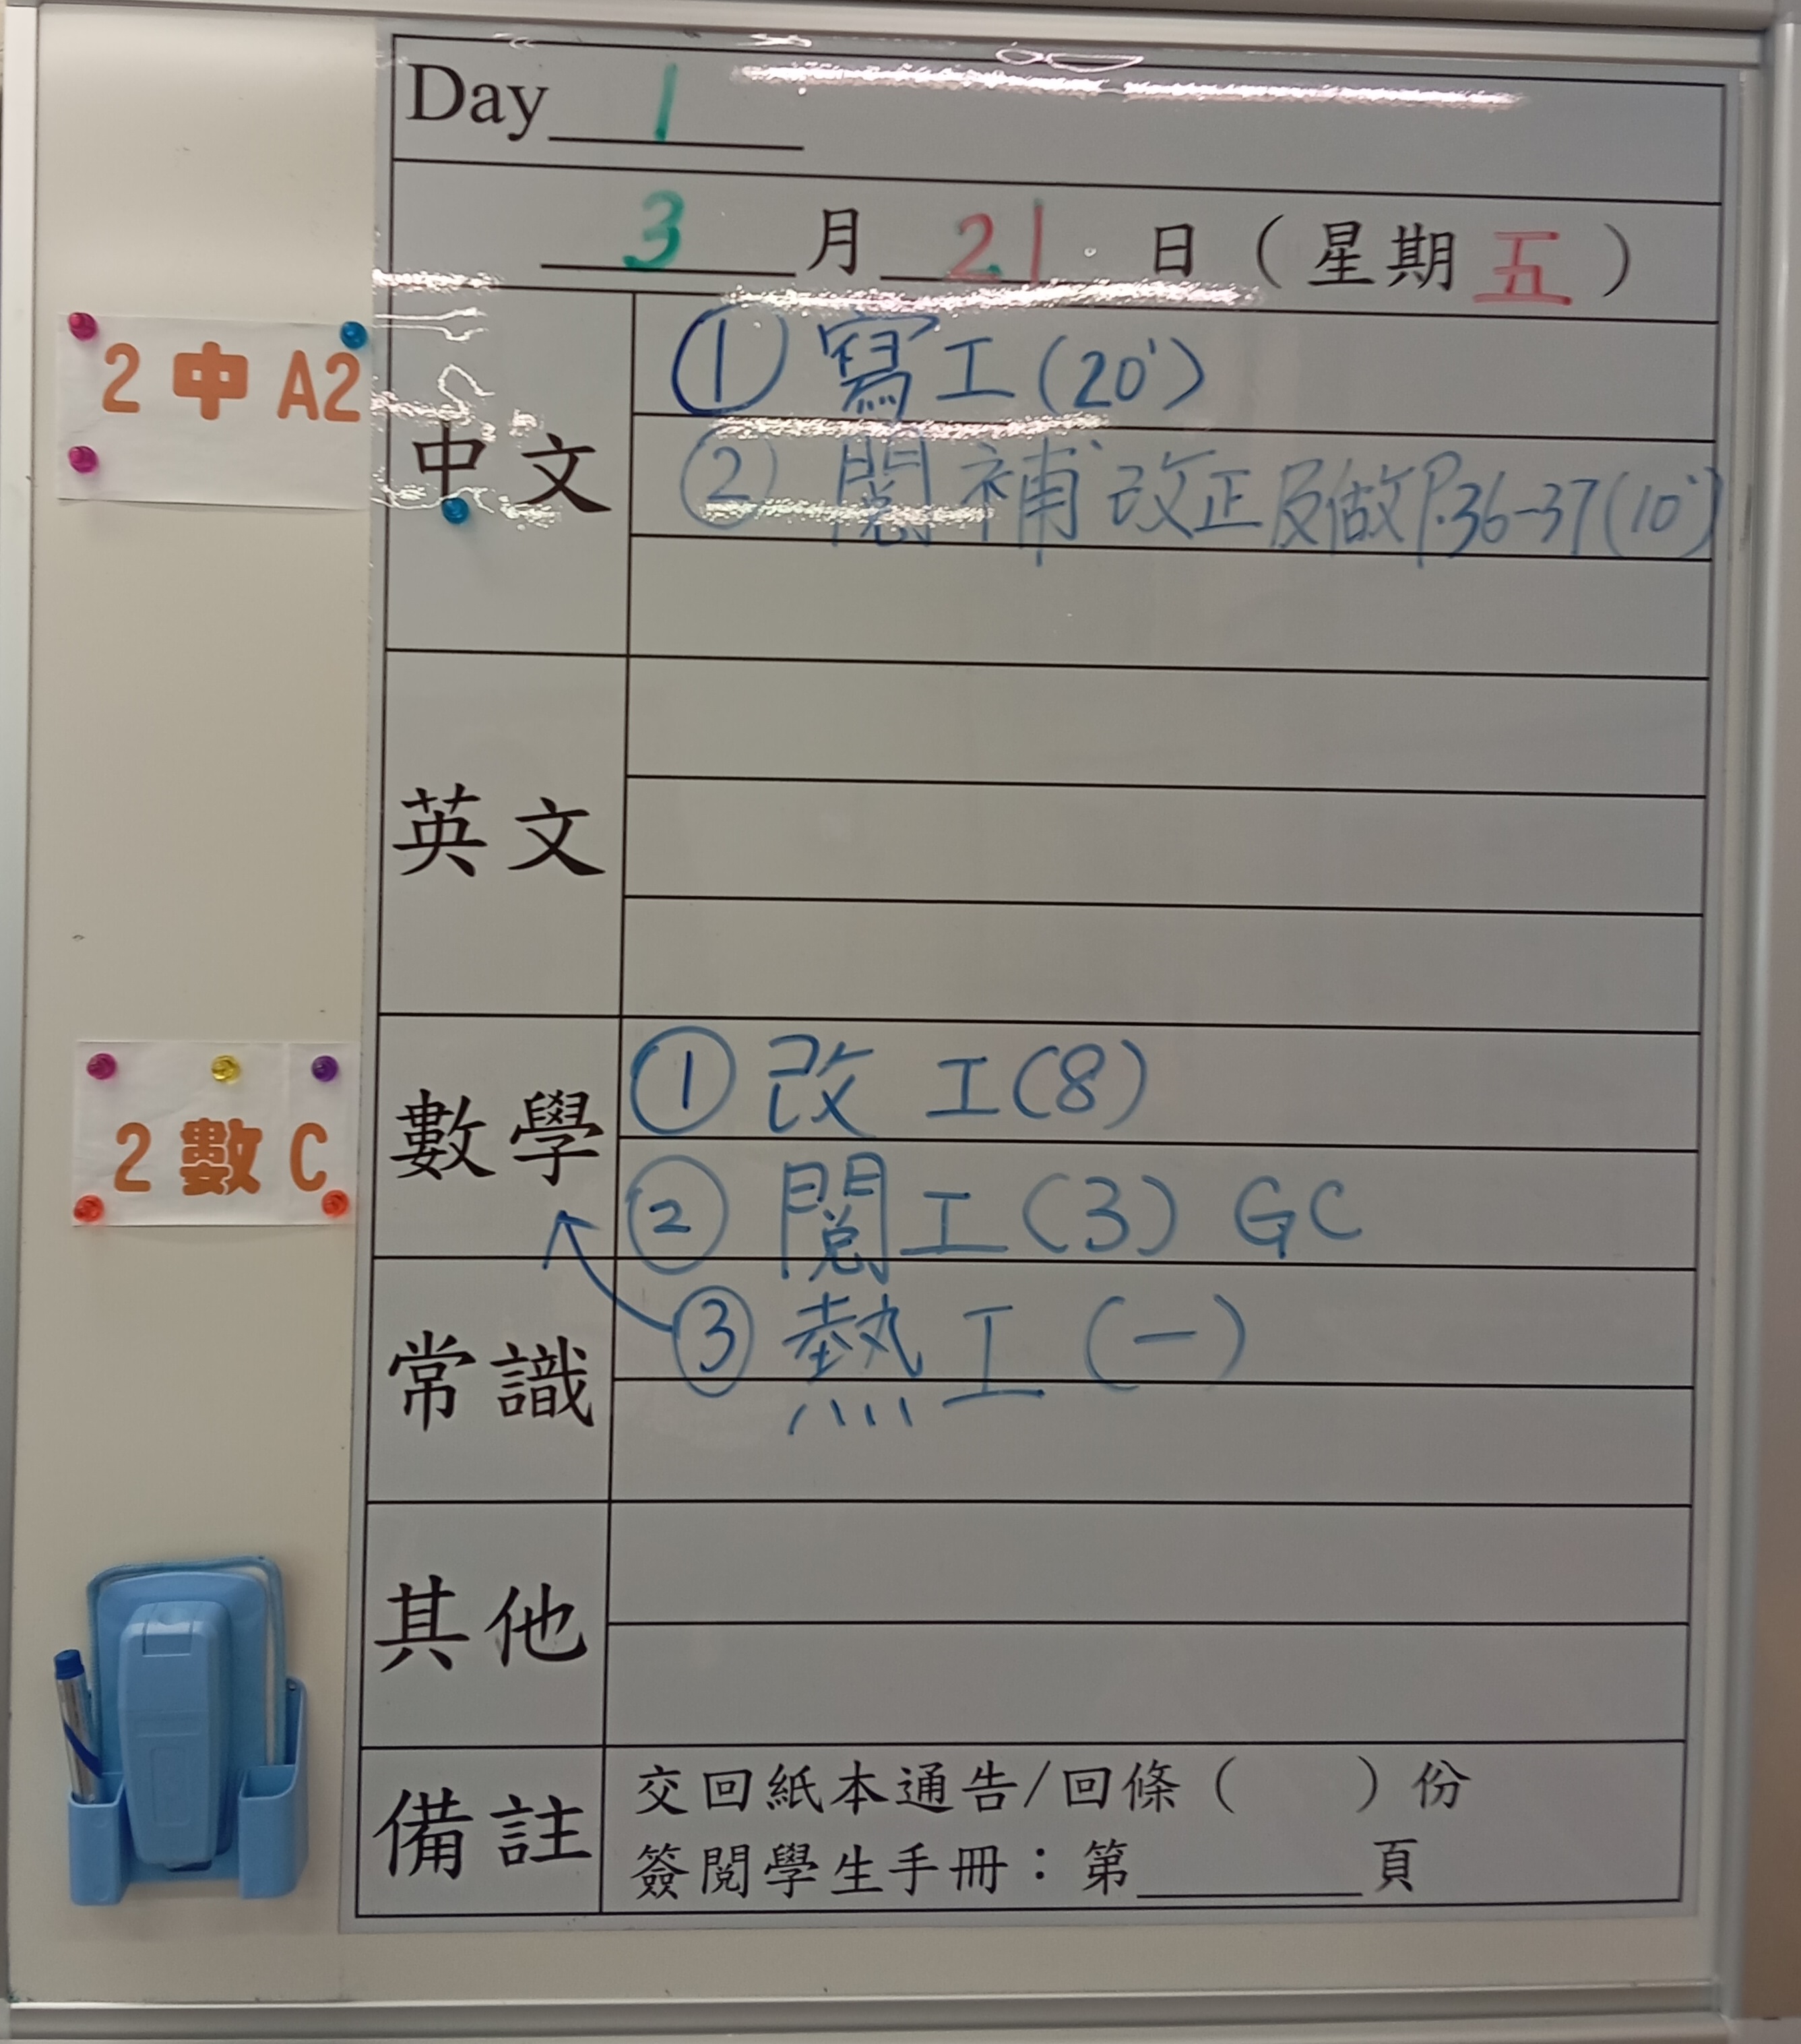 Day 1
3 月 21 日 ( 星期 五 )
2 中 A2
中文
① 寫工(20')
② 閱補 改正及做P.36-37(10')
英文
2 數 C
數學
① 改 工(8)
② 閱工(3) GC
常識
③ 熱工(一)
其他
備註
交回紙本通告/回條 ( ) 份
簽閱學生手冊:第______頁